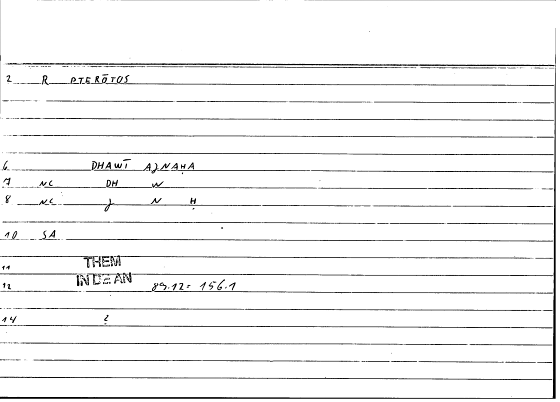 2 R PTERŌTOS
6 DHAWĪ AǰNAḤA
7 NC DH W
8 NC ǰ N Ḥ
10 SA
11 THEM
12 IN DE AN 89.12 = 156.1
14 2